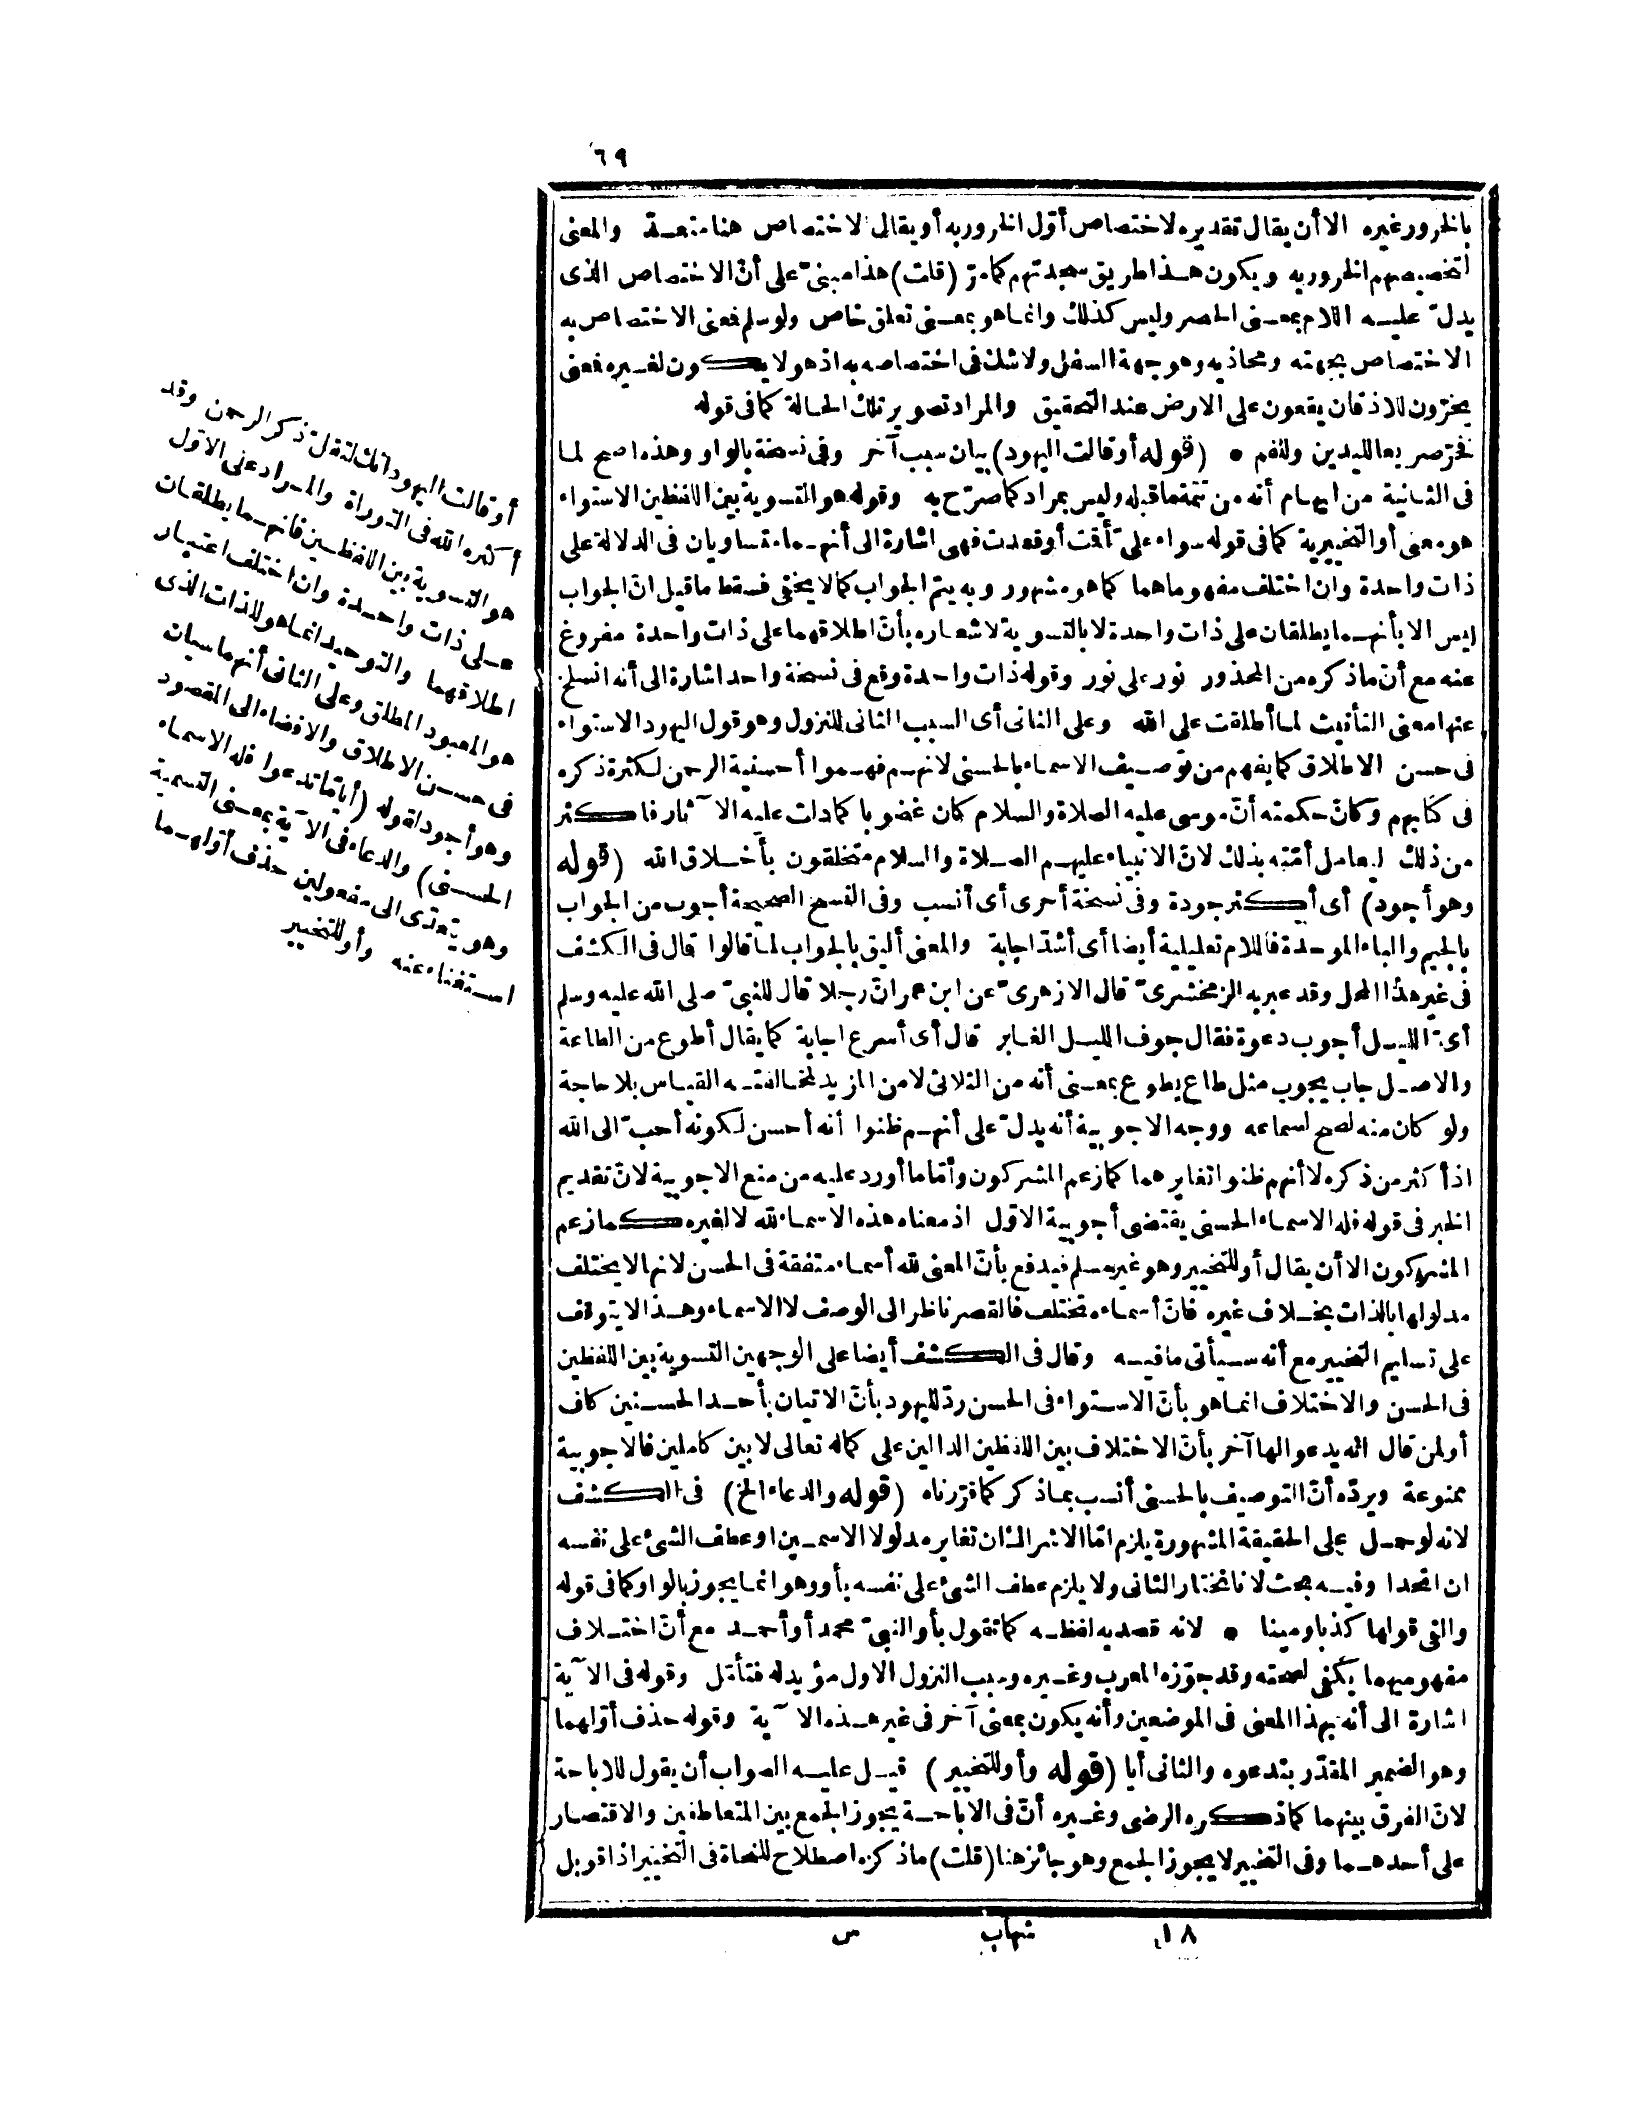 ٦٩
بالخرور غيره الا أن يقال تقديره لاختصاص أوّل الخرور به أو يقال الاختصاص هنا متعدّ والمعنى
لتخصيصهم الخرور به ويكون هذا طريق سجدتهم كما مرّ (قلت) هذا مبنىّ على أنّ الاختصاص الذى
يدلّ عليه اللام بمعنى الحصر وليس كذلك وانما هو بمعنى تعلق خاص ولو سلم فمعنى الاختصاص به
الاختصاص بجهته ومحاذيه وهو جهة السفل ولا شك فى اختصاصه به اذ هو لا يكون لغيره فمعنى
يخرّون للاذقان يقعون على الارض عند التحقيق والمراد تصوير تلك الحالة كما فى قوله
فخرّ صريعا لليدين وللفم * (قوله أو قالت اليهود) بيان سبب آخر وفى نسخة بالواو وهذه أصح لما
فى الثانية من ايهام أنه من تتمة ما قبله وليس بمراد كما صرّح به وقوله هو التسوية بين اللفظين الاستواء
هو معنى أو التخييرية كما فى قوله سواء علىّ أقمت أو قعدت فهى اشارة الى أنهما متساويان فى الدلالة على
ذات واحدة وان اختلف مفهوماهما كما هو مشهور وبه يتم الجواب كما لا يخفى فسقط ما قيل انّ الجواب
ليس الا بأنهما يطلقان على ذات واحدة لا بالتسوية لاشعاره بأنّ اطلاقهما على ذات واحدة مفروغ
عنه مع أنّ ما ذكره من المحذور نور على نور وقوله ذات واحدة وقع فى نسخة واحد اشارة الى أنه انسلخ
عنها معنى التأنيث لما أطلقت على الله وعلى الثانى أى السبب الثانى للنزول وهو قول اليهود الاستواء
فى حسن الاطلاق كما يفهم من توصيف الاسماء بالحسنى لانهم فهموا أحسنية الرحمن لكثرة ذكره
فى كتابهم وكانّ حكمته أنّ موسى عليه الصلاة والسلام كان غضوبا كما دلت عليه الآثار فاكثر
من ذلك ليعامل أمّته بذلك لانّ الانبياء عليهم الصلاة والسلام متخلقون بأخلاق الله (قوله
وهو أجود) أى أكثر جودة وفى نسخة أخرى أى أنسب وفى النسخ الصحيحة أجوب من الجواب
بالجيم والباء الموحدة فاللام تعليلية أيضا أى أشدّ اجابة والمعنى أليق بالجواب لما قالوا قال فى الكشف
فى غير هذا المحل وقد عبر به الزمخشرىّ قال الازهرىّ عن ابن عمر انّ رجلا قال للنبىّ صلى الله عليه وسلم
أىّ الليل أجوب دعوة فقال جوف الليل الغابر قال أى أسرع اجابة كما يقال أطوع من الطاعة
والاصل جاب يجوب مثل طاع يطوع بمعنى أنه من الثلاثى لا من المزيد لمخالفته القياس بلا حاجة
ولو كان منه لصح لسماعه ووجه الاجوبية أنه يدلّ على أنهم ظنوا أنه أحسن لكونه أحبّ الى الله
اذ أكثر من ذكره لا أنهم ظنوا تغايرهما كما زعم المشركون وأمّا ما أورد عليه من منع الاجوبية لانّ تقديم
الخبر فى قوله فله الاسماء الحسنى يقتضى أجوبية الاوّل اذ معناه هذه الاسماء لله لا لغيره كما زعم
المشركون الا أن يقال أو للتخيير وهو غير مسلم فيدفع بأنّ المعنى لله أسماء متفقة فى الحسن لانها لا يختلف
مدلولها بالذات بخلاف غيره فانّ أسماءه تختلف فالقصر ناظر الى الوصف لا الاسماء وهذا لا يتوقف
على تسليم التخيير مع أنه سيأتى ما فيه وقال فى الكشف أيضا على الوجهين التسوية بين اللفظين
فى الحسن والاختلاف انما هو بأنّ الاستواء فى الحسن ردّ لليهود بأنّ الاتيان بأحد الحسنين كاف
أو لمن قال انه يدعو الها آخر بأنّ الاختلاف بين اللفظين الدالين على كماله تعالى لا بين كاملين فالاجوبية
ممنوعة ويردّه أنّ التوصيف بالحسنى أنسب بما ذكر كما قرّرناه (قوله والدعاء الخ) فى الكشف
لانه لو حمل على الحقيقة المشهورة يلزم امّا الاشراك ان تغاير مدلولا الاسمين او عطف الشئ على نفسه
ان اتحدا وفيه بحث لانا نختار الثانى ولا يلزم عطف الشئ على نفسه بأو وهو انما يجوز بالواو كما فى قوله
والفى قولها كذبا ومينا * لانه قصد به لفظه كما تقول بأو النبىّ محمد أو أحمد مع أنّ اختلاف
مفهوميهما يكفى لصحته وقد جوّزه المعرب وغيره وسبب النزول الاول مؤيد له فتأمّل وقوله فى الآية
اشارة الى أنه بهذا المعنى فى الموضعين وأنه يكون بمعنى آخر فى غير هذه الآية وقوله حذف أوّلهما
وهو الضمير المقدّر بتدعوه والثانى أيا (قوله وأو للتخيير) قيل عليه الصواب أن يقول للاباحة
لانّ الفرق بينهما كما ذكره الرضى وغيره أنّ فى الاباحة يجوز الجمع بين المتعاطفين والاقتصار
على أحدهما وفى التخيير لا يجوز الجمع وهو جائز هنا (قلت) ما ذكره اصطلاح للنحاة فى التخيير اذا قوبل
أو قالت اليهود انك لتقل ذكر الرحمن وقد
أكثره الله فى التوراة والمراد على الاوّل
هو التسوية بين اللفظين فانهما يطلقان
على ذات واحدة وان اختلف اعتبار
اطلاقهما والتوحيد انما هو للذات الذى
هو المعبود المطلق وعلى الثانى أنهما سيان
فى حسن الاطلاق والافضاء الى المقصود
وهو أجود لقوله (أيّا ما تدعوا فله الاسماء
الحسنى) والدعاء فى الآية بمعنى التسمية
وهو يتعدّى الى مفعولين حذف أوّلهما
استغناء عنه وأو للتخيير
١٨ شهاب س